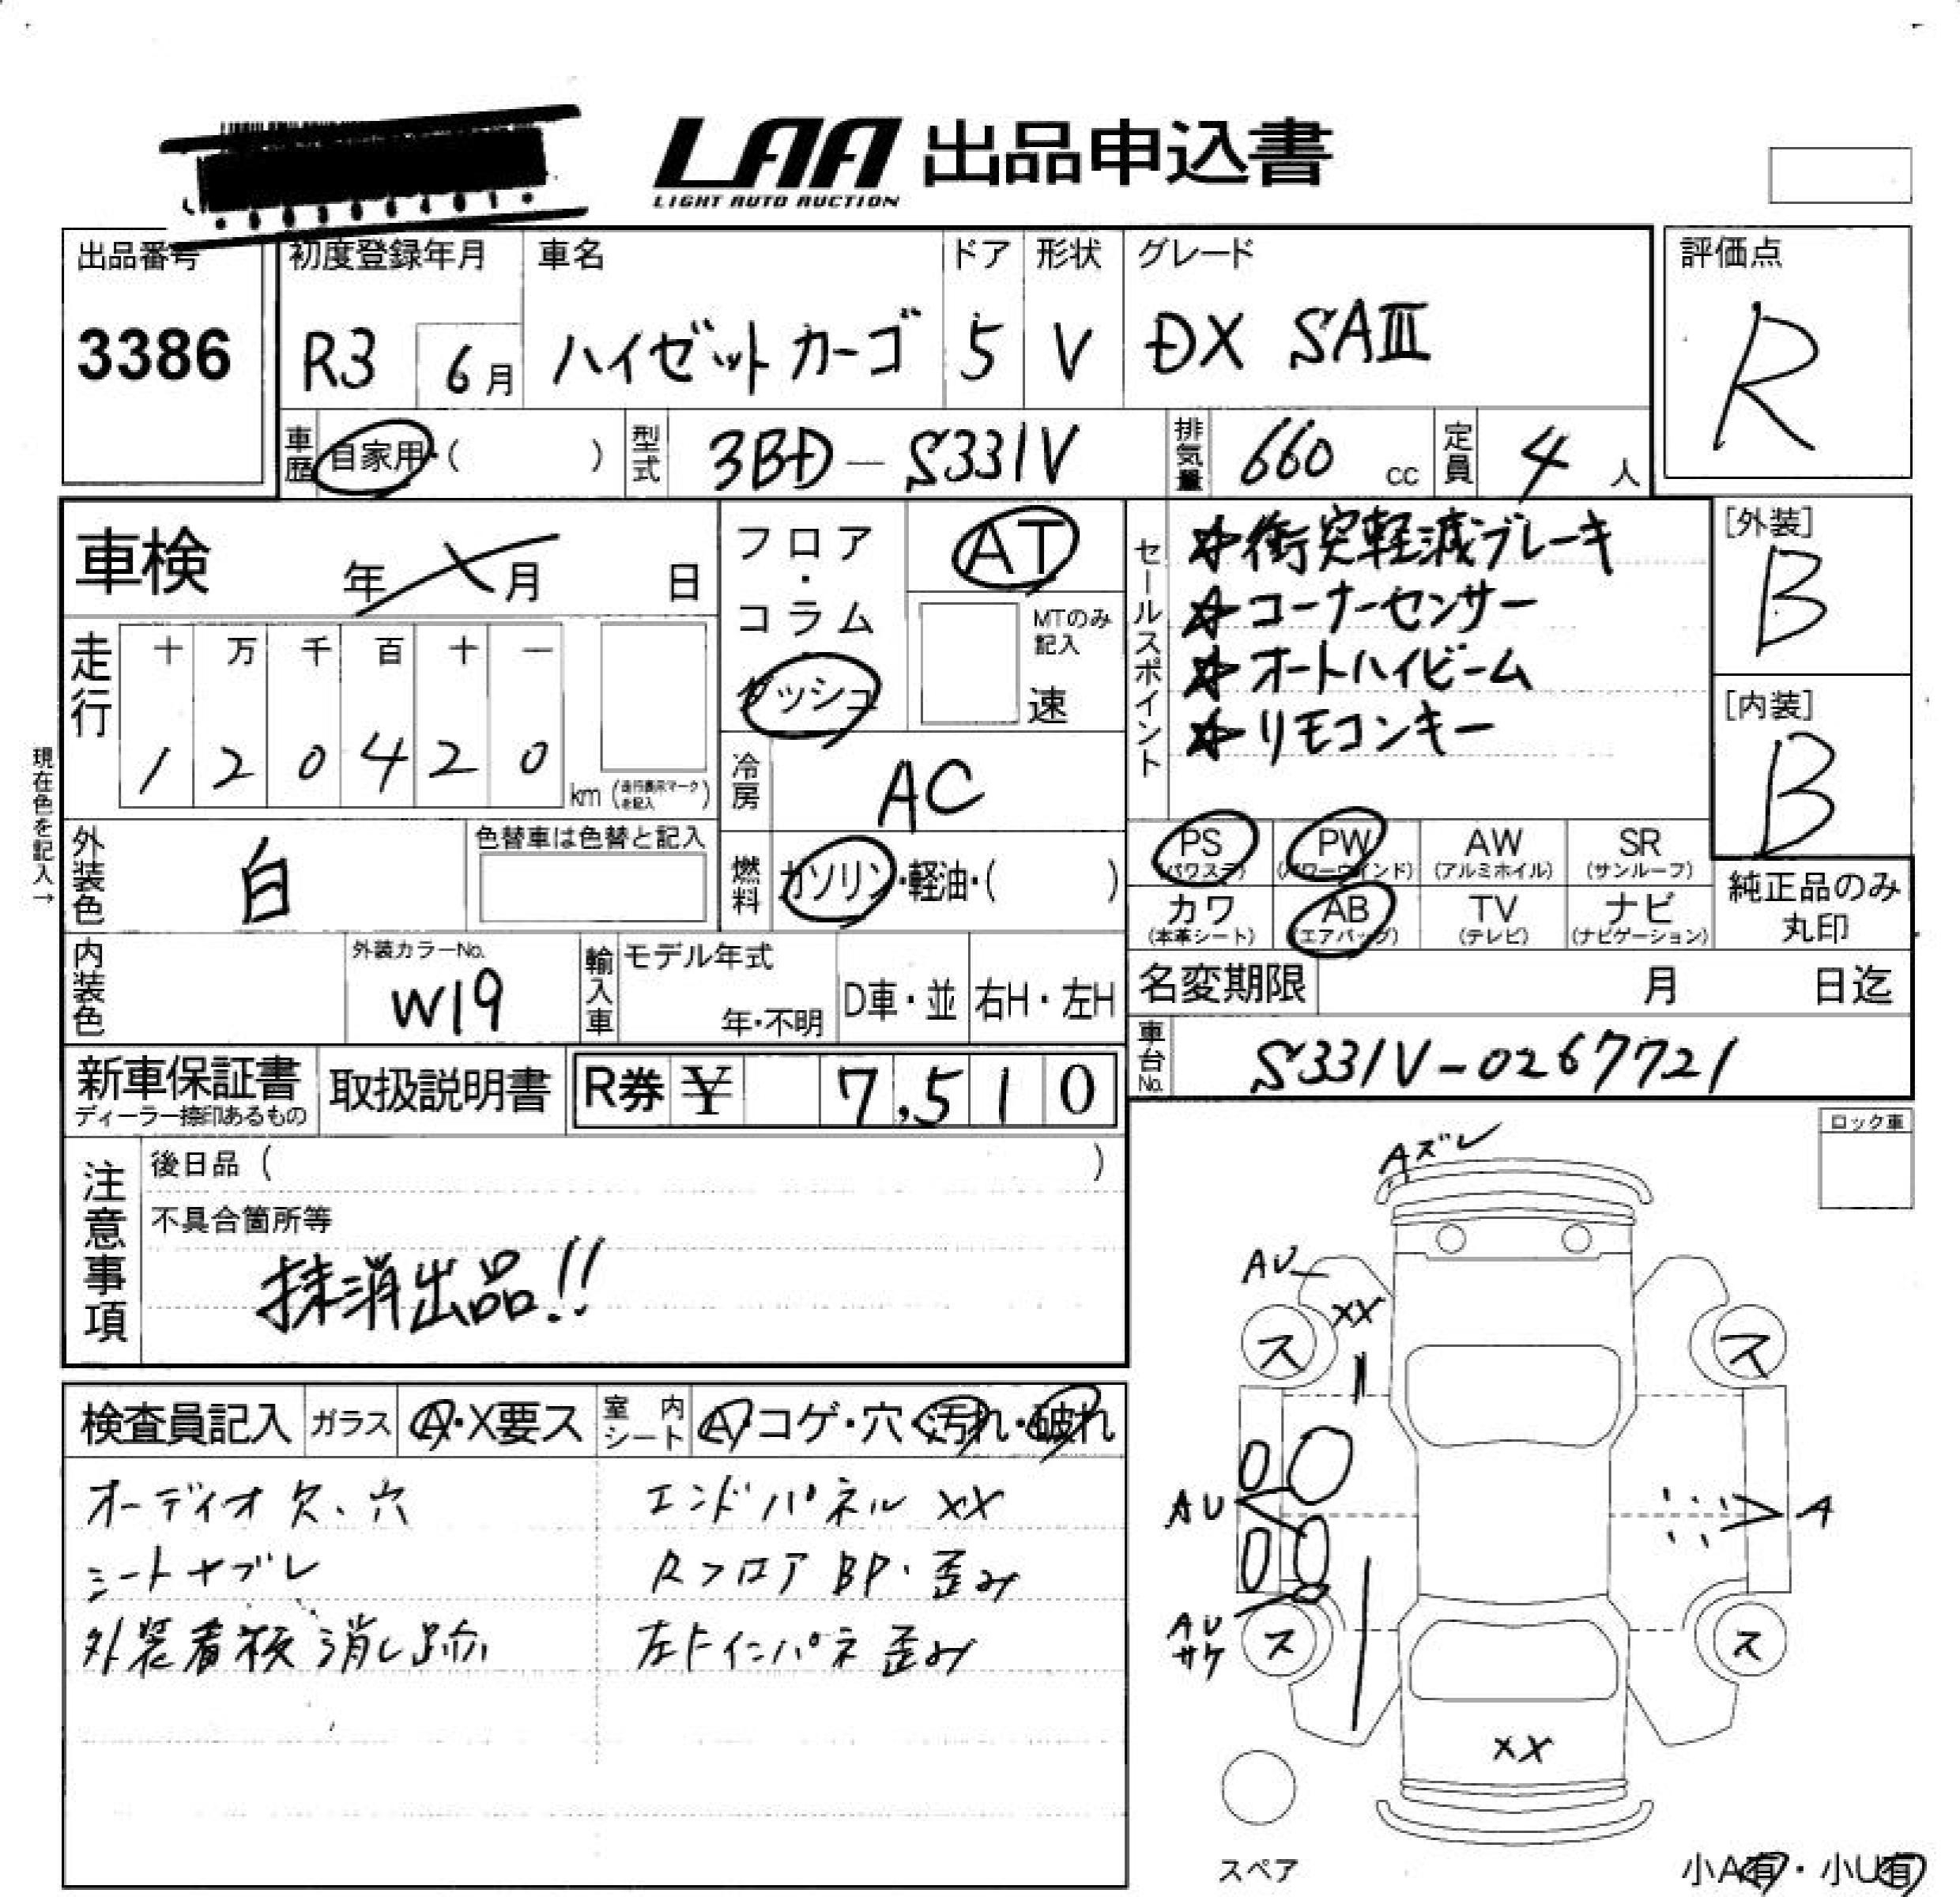 LAA 出品申込書
LIGHT AUTO AUCTION
出品番号
3386
初度登録年月
R3 6月
車名
ハイゼットカーゴ
ドア
5
形状
V
グレード
DX SAIII
評価点
R
車歴 自家用・( )
型式 3BD-S331V
排気量 660 cc
定員 4 人
車検 年 月 日
走行
十 万 千 百 十 一
1 2 0 4 2 0 km (走行表示マークを記入)
現在色を記入→
外装色 白
色替車は色替と記入
内装色
外装カラーNo.
W19
フロア・コラム
ダッシュ
AT
MTのみ記入
速
冷房 AC
燃料 ガソリン・軽油・( )
輸入車 モデル年式
年・不明
D車・並
右H・左H
セールスポイント
☆衝突軽減ブレーキ
☆コーナーセンサー
☆オートハイビーム
☆リモコンキー
[外装]
B
[内装]
B
PS (パワステ)
PW (パワーウインド)
AW (アルミホイル)
SR (サンルーフ)
カワ (本革シート)
AB (エアバッグ)
TV (テレビ)
ナビ (ナビゲーション)
純正品のみ
丸印
名変期限 月 日迄
車台No. S331V-0267721
新車保証書
ディーラー捺印あるもの
取扱説明書
R券 ¥ 7,510
注意事項
後日品 ( )
不具合箇所等
抹消出品!!
ロック車
検査員記入
ガラス A・X要ス
室内シート A・コゲ・穴・汚れ・破れ
オーディオ欠、穴
シートヤブレ
外装看板消し跡
エンドパネル XX
Rフロア BP・歪み
左Fインパネ 歪み
Aズレ
AU
XX
ス
ス
AU
A
AU
サケ
ス
ス
XX
スペア
小A有・小U有